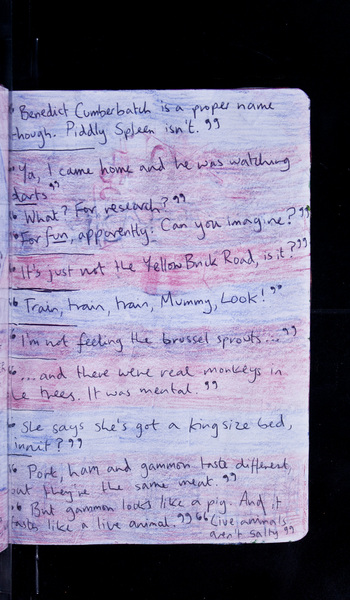 “Benedict Cumberbatch is a proper name
though. Piddly Spleen isn't.”
“Ya, I came home and he was watching
darts”
“What? For research?”
“For fun, apparently. Can you imagine?”
“It's just not the Yellow Brick Road, is it?”
“Train, train, train, Mummy, Look!”
“I'm not feeling the brussel sprouts...”
“...and there were real monkeys in
trees. It was mental.”
“She says she's got a kingsize bed,
innit?”
“Port, ham and gammon taste different,
but they're the same meat.”
“But gammon looks like a pig. And it
tastes like a live animal.” “Live animals
aren't salty”